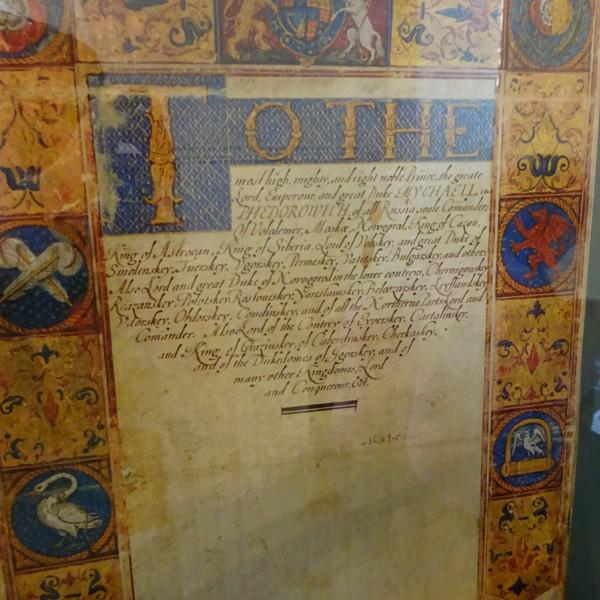 TO THE
most high, mighty, and right noble Prince, the greate
Lord, Emperour, and great Duke MYCHAELL
PHEDOROWICH, of all Russia, soale Comander,
Of Volodemer, Moskoe, Novogorod, King of Cazan,
King of Astrocan, King of Siberia, Lord of Volskey, and great Duke of
Smolenskey, Tuerskey, Ygorskey, Permeskey, Vatutskey, Bulgarskey, and others
Also Lord and great Duke of Novogorod in the lower contrey, Chernigouskey
Reazanskey, Polotskey, Rostoueskey, Yaraslauskey, Beloozarskey, Leyflandskey
Vdorskey, Obdorskey, Condinskey, and of all the Northerne Parts Lord and
Comander. Also Lord of the Contrey of Everskey, Cartalinskey,
and King of Grazinskey, of Caberdinskey, Cherkaskey,
and of the Dukedomes of Ygorskey, and of
many other Kingdomes, Lord
and Conquerour, &ct.